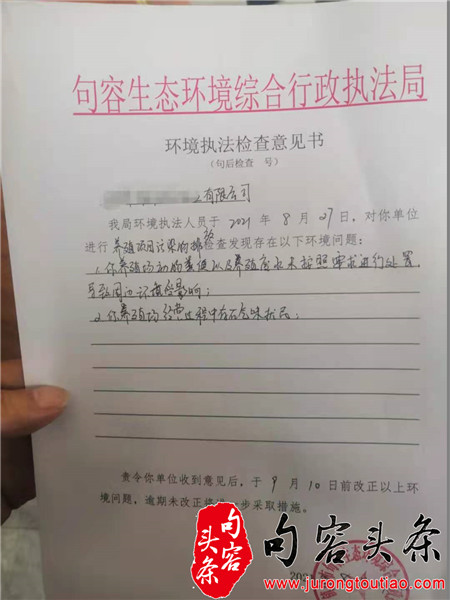 句容生态环境综合行政执法局
环境执法检查意见书
（句后检查 号）
有限公司
我局环境执法人员于 2021 年 8 月 27 日，对你单位
进行 养殖项目污染防 检查发现存在以下环境问题：
1.你养殖场动物粪便以及养殖废水未按照要求进行处置
导致周边环境受影响；
2.你养殖场经营过程中存在气味扰民。
责令你单位收到意见后，于 9 月 10 日前改正以上环
境问题，逾期未改正 一步采取措施。
202
句容
头条
句容头条
www.jurongtoutiao.com